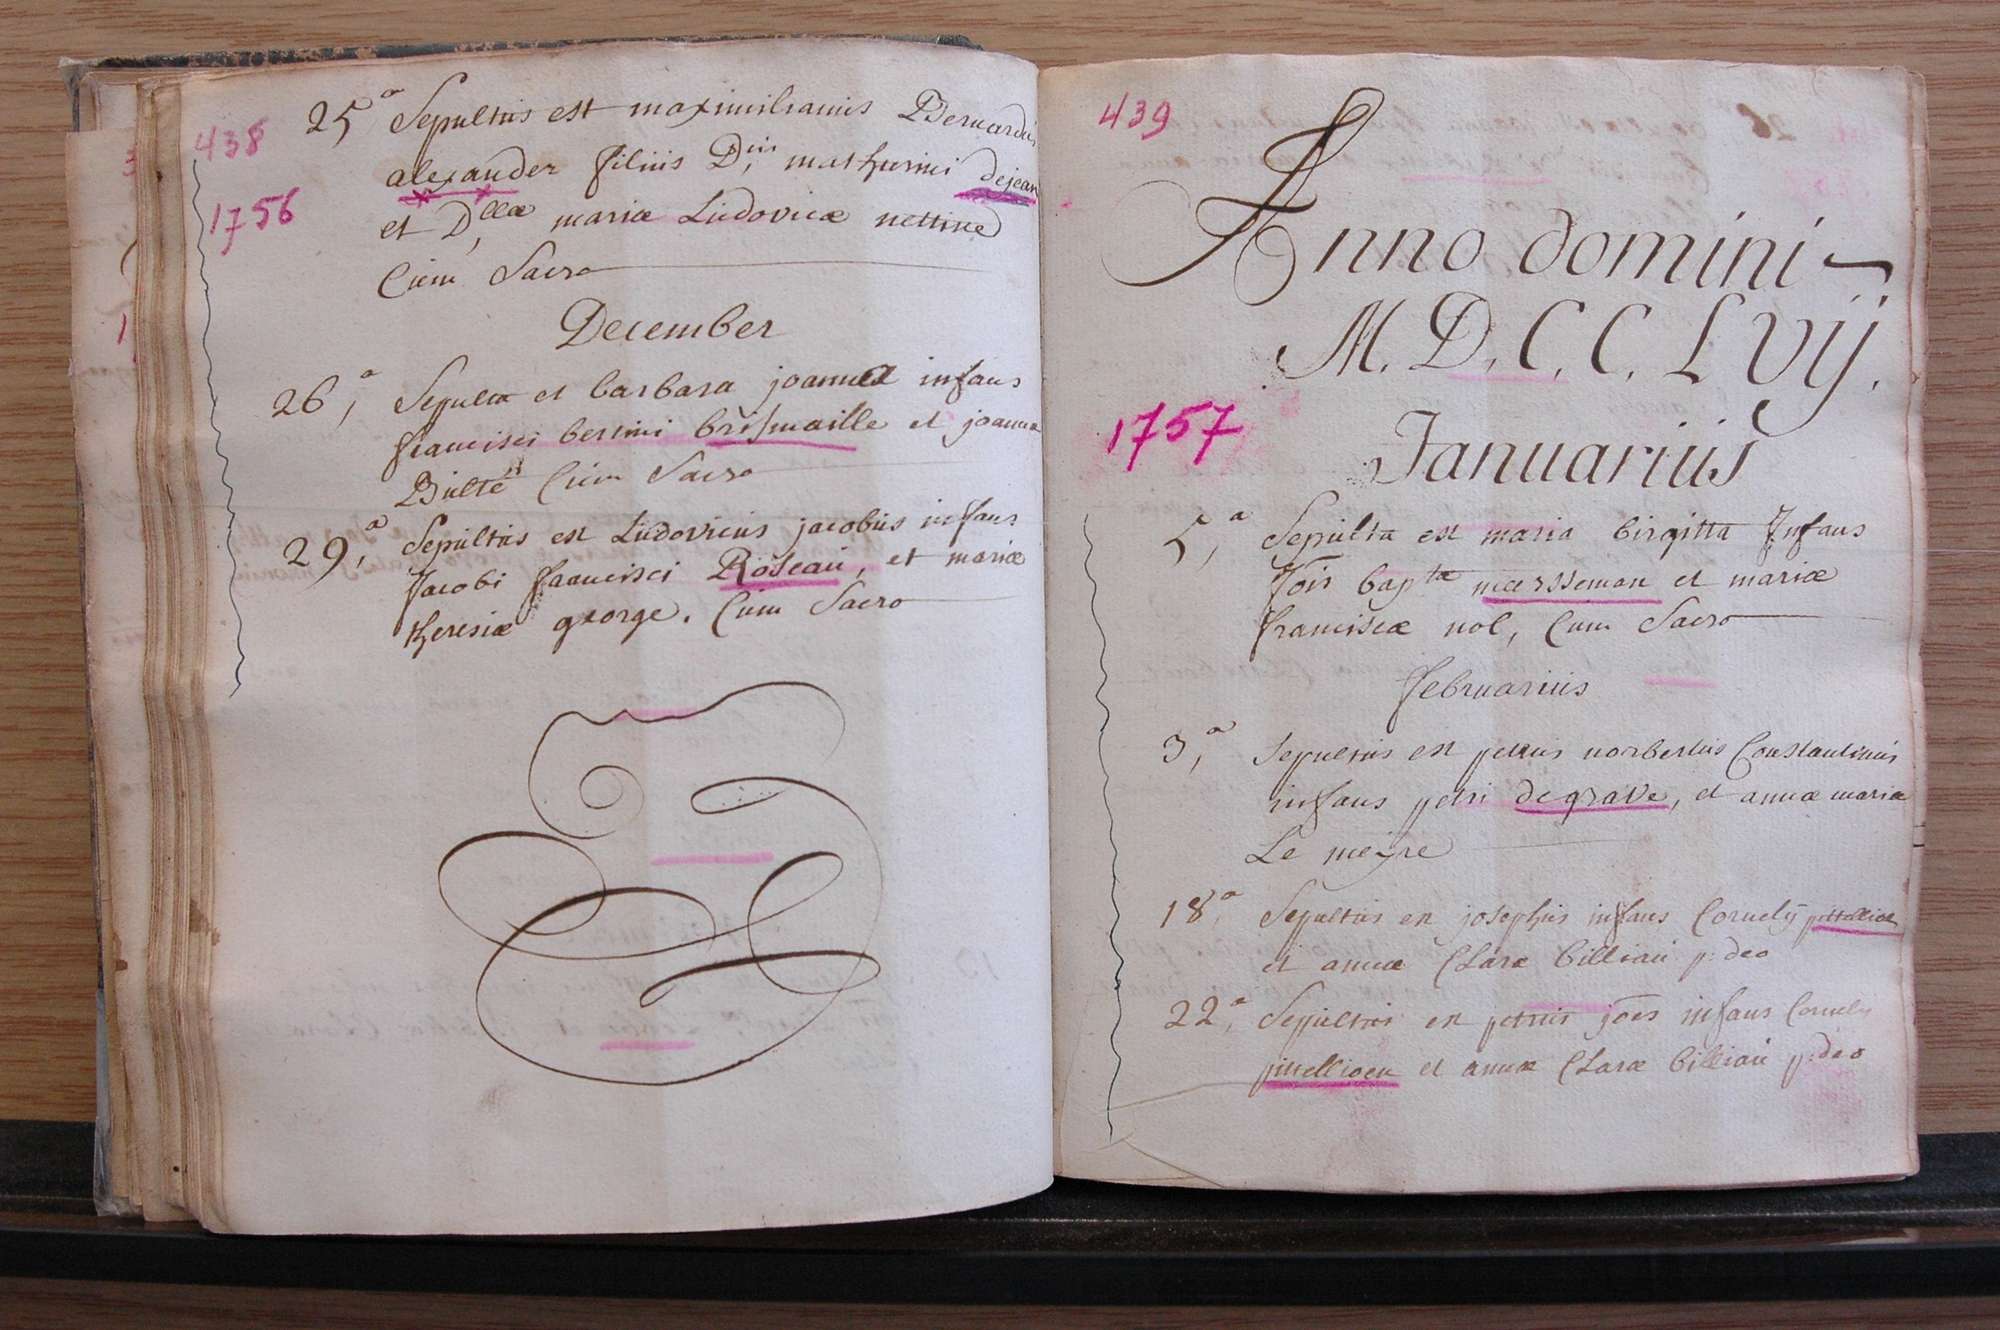 438
1756
25a Sepultus est maximilianus Bernardus
alexander filius Dni mathurini dejean
et Dllae mariæ Ludovicæ nettine
Cum Sacro
December
26,a Sepulta est barbara joanna infans
francisci bertini brismaille et joannæ
Bulté Cum Sacro
29,a Sepultus est Ludovicus jacobus infans
Jacobi francisci Roseau, et mariæ
theresiæ george. Cum Sacro
439
Anno domini
M. D. C. C. L vij.
1757
Januarius
5,a Sepulta est maria birgitta Infans
Jois bapta maesseman et mariæ
franciscæ nol, Cum Sacro
februarius
3,a Sepultus est petrus norbertus Constantinus
infans petri degrave, et annæ mariæ
Le meyre
18,a Sepultus est josephus infans Cornelij
et annæ Claræ billiau p: deo
22,a Sepultus est petrus joes infans Cornelij
pittellioen et annæ Claræ billiau p: deo